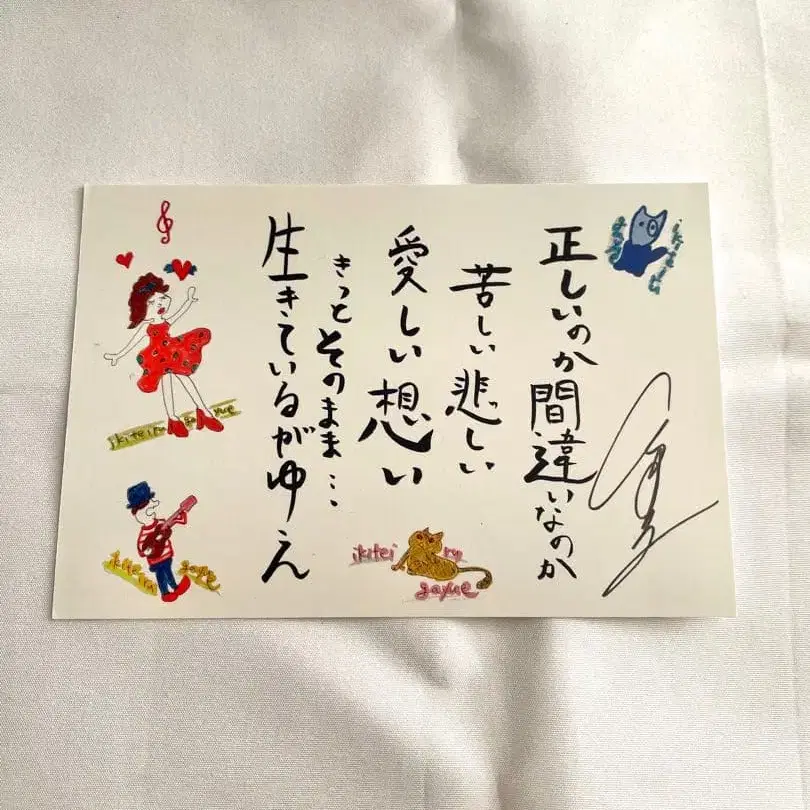 正しいのか間違いなのか
苦しい悲しい
愛しい想い
きっとそのまま…
生きているがゆえ
ikiteiru gayue
ikitei ru
gayue